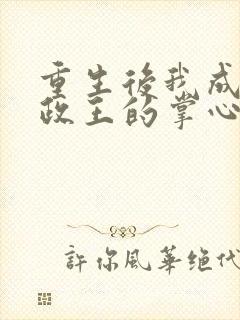 重生後我成
政王的掌心
許你風華绝代